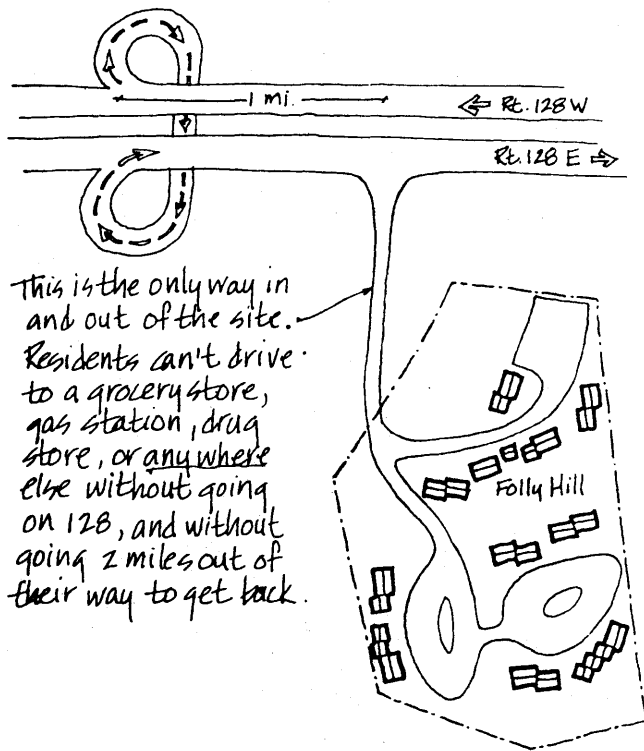 1 mi.
Rt. 128 W
Rt. 128 E
This is the only way in
and out of the site.
Residents can't drive
to a grocery store,
gas station, drug
store, or anywhere
else without going
on 128, and without
going 2 miles out of
their way to get back.
Folly Hill